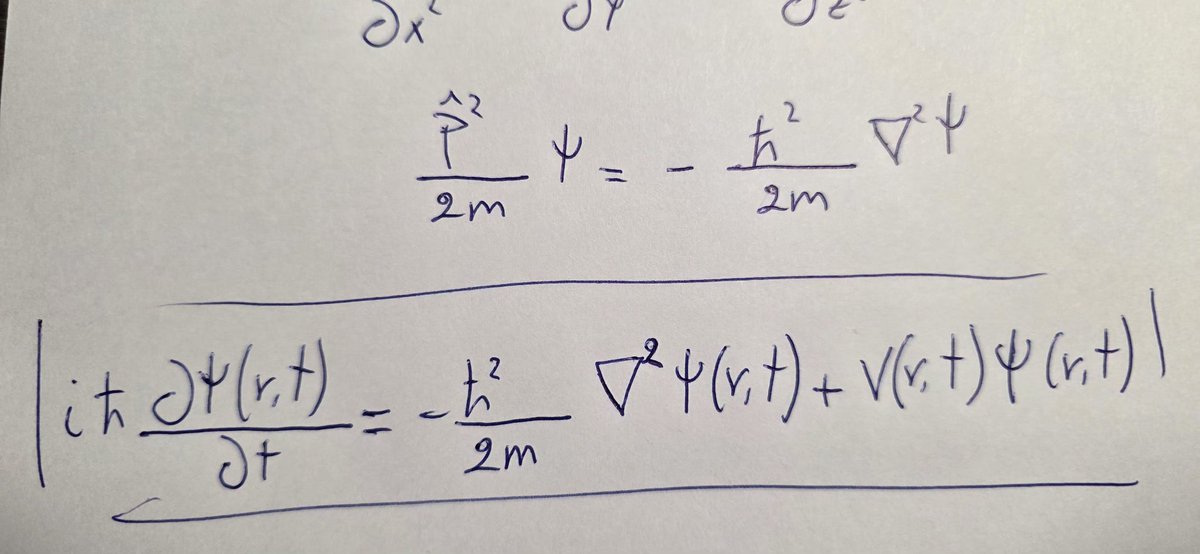 ∂x² ∂y ∂z
p̂²/2m ψ = - ħ²/2m ∇²ψ
iħ ∂ψ(r,t)/∂t = - ħ²/2m ∇²ψ(r,t) + V(r,t)ψ(r,t)